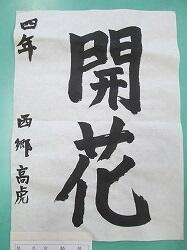 開花
四年
西郷高虎